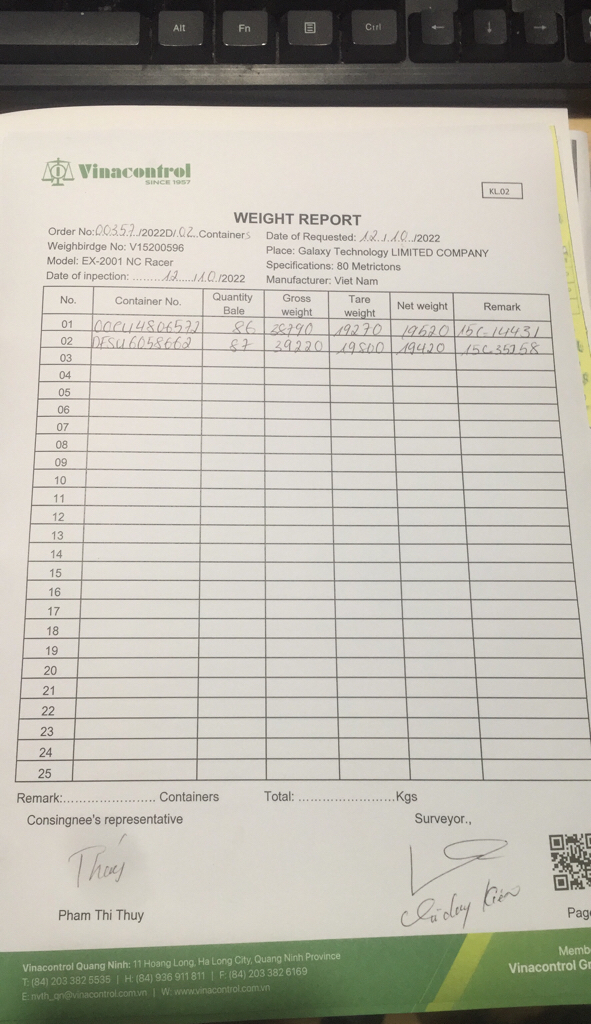 Alt Fn Ctrl
Vinacontrol
SINCE 1957
KL.02
WEIGHT REPORT
Order No:00357./2022D/.02..Containers
Date of Requested: .12./.10../2022
Weighbirdge No: V15200596
Place: Galaxy Technology LIMITED COMPANY
Model: EX-2001 NC Racer
Specifications: 80 Metrictons
Date of inpection: .........12..../10/2022
Manufacturer: Viet Nam
No. Container No. Quantity Bale Gross weight Tare weight Net weight Remark
01 OOCU4806572 86 38790 19270 19520 15C-14431
02 DFSU6058662 87 39220 19800 19420 15C-35758
03
04
05
06
07
08
09
10
11
12
13
14
15
16
17
18
19
20
21
22
23
24
25
Remark:........................ Containers Total: .........................Kgs
Consingnee's representative Surveyor.,
Thuy
Pham Thi Thuy
Page
Vinacontrol Quang Ninh: 11 Hoang Long, Ha Long City, Quang Ninh Province
T: (84) 203 382 5535 | H: (84) 936 911 811 | F: (84) 203 382 6169
E: nvth_qn@vinacontrol.com.vn | W: www.vinacontrol.com.vn
Memb
Vinacontrol Gr